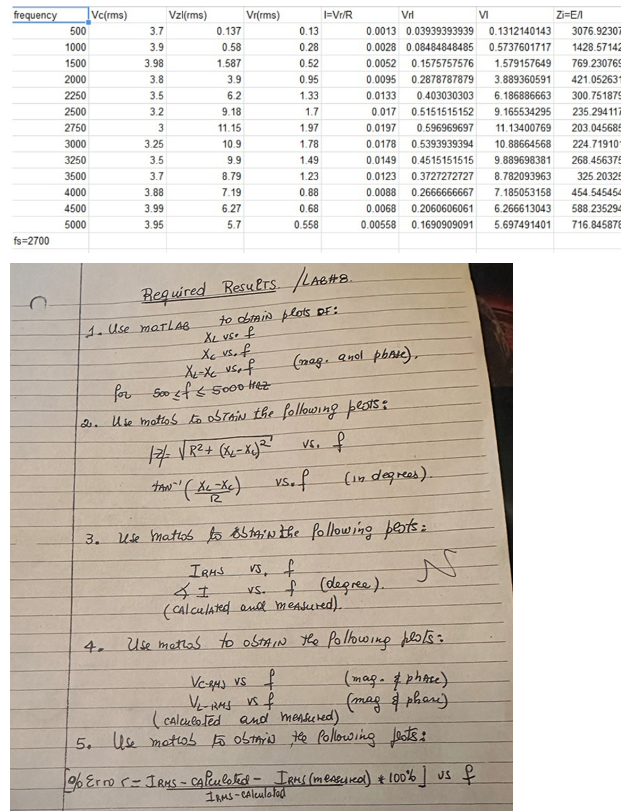 frequency Vc(rms) Vzl(rms) Vr(rms) I=Vr/R Vrl Vl Zi=E/I
500 3.7 0.137 0.13 0.0013 0.03939393939 0.1312140143 3076.92307
1000 3.9 0.58 0.28 0.0028 0.08484848485 0.5737601717 1428.57142
1500 3.98 1.587 0.52 0.0052 0.1575757576 1.579157649 769.230769
2000 3.8 3.9 0.95 0.0095 0.2878787879 3.889360591 421.052631
2250 3.5 6.2 1.33 0.0133 0.403030303 6.186886663 300.751879
2500 3.2 9.18 1.7 0.017 0.5151515152 9.165534295 235.294117
2750 3 11.15 1.97 0.0197 0.596969697 11.13400769 203.045685
3000 3.25 10.9 1.78 0.0178 0.5393939394 10.88664568 224.719101
3250 3.5 9.9 1.49 0.0149 0.4515151515 9.889698381 268.456375
3500 3.7 8.79 1.23 0.0123 0.3727272727 8.782093963 325.20325
4000 3.88 7.19 0.88 0.0088 0.2666666667 7.185053158 454.545454
4500 3.99 6.27 0.68 0.0068 0.2060606061 6.266613043 588.235294
5000 3.95 5.7 0.558 0.00558 0.1690909091 5.697491401 716.845878
fs=2700
Required Results. /LAB#8.
1. Use MATLAB to obtain plots OF:
XL vs. f
Xc vs. f
XL-Xc vs. f (mag. and phase).
for 500 ≤ f ≤ 5000 HRZ
2. Use matlab to obtain the following plots:
|Z|= √R²+(XL-Xc)² vs. f
TAN⁻¹ (XL-Xc / R) vs. f (in degrees).
3. Use matlab to obtain the following plots:
IRMS vs. f
∢ I vs. f (degree).
(calculated and measured).
4. Use matlab to obtain the following plots:
Vc-RMS vs f (mag. & phase)
VL-RMS vs f (mag & phase)
(calculated and measured)
5. Use matlab to obtain the following plots:
[% Error = IRMS-calculated - IRMS (measured) * 100%] vs f
IRMS-calculated